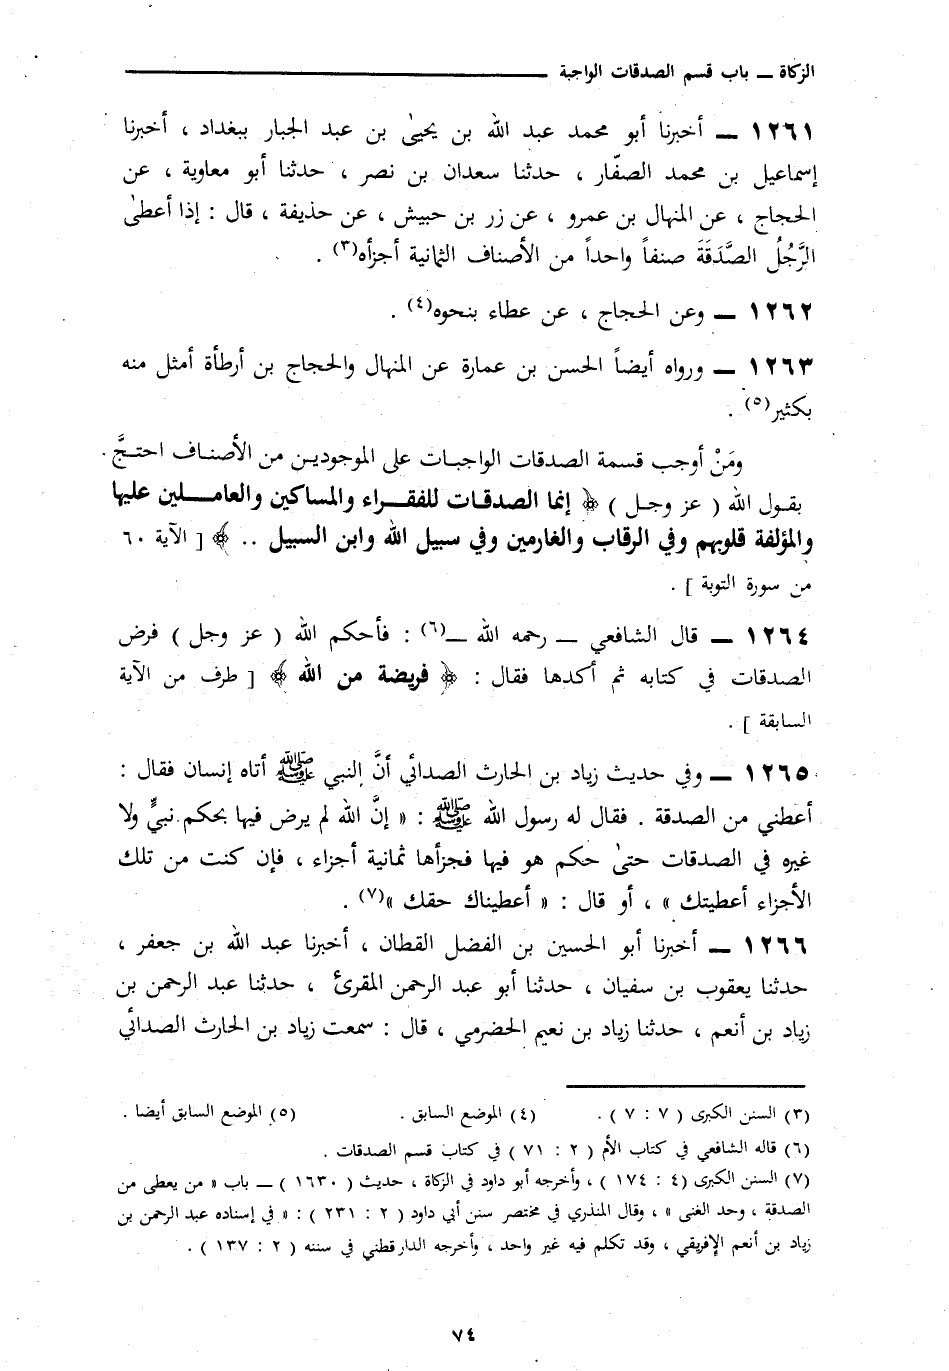 الزكاة ــ باب قسم الصدقات الواجبة
١٢٦١ ــ أخبرنا أبو محمد عبد الله بن يحيىٰ بن عبد الجبار ببغداد ، أخبرنا
إسماعيل بن محمد الصفّار ، حدثنا سعدان بن نصر ، حدثنا أبو معاوية ، عن
الحجاج ، عن المنهال بن عمرو ، عن زر بن حبيش ، عن حذيفة ، قال : إذا أعطىٰ
الرَّجُلُ الصَّدَقَةَ صنفاً واحداً من الأصناف الثمانية أجزأه(٣) .
١٢٦٢ ــ وعن الحجاج ، عن عطاء بنحوه(٤) .
١٢٦٣ ــ ورواه أيضاً الحسن بن عمارة عن المنهال والحجاج بن أرطأة أمثل منه
بكثير(٥) .
ومَنْ أوجب قسمة الصدقات الواجبات على الموجودين من الأصناف احتجَّ
بقول الله ( عز وجل ) ﴿ إنما الصدقات للفقراء والمساكين والعاملين عليها
والمؤلفة قلوبهم وفي الرقاب والغارمين وفي سبيل الله وابن السبيل .. ﴾ [ الآية ٦٠
من سورة التوبة ] .
١٢٦٤ ــ قال الشافعي ــ رحمه الله ــ(٦) : فأحكم الله ( عز وجل ) فرض
الصدقات في كتابه ثم أكدها فقال : ﴿ فريضة من الله ﴾ [ طرف من الآية
السابقة ] .
١٢٦٥ ــ وفي حديث زياد بن الحارث الصدائي أنَّ النبي ﷺ أتاه إنسان فقال :
أعطني من الصدقة . فقال له رسول الله ﷺ : « إنَّ الله لم يرض فيها بحكم نبيٍّ ولا
غيره في الصدقات حتىٰ حكم هو فيها فجزأها ثمانية أجزاء ، فإن كنت من تلك
الأجزاء أعطيتك » ، أو قال : « أعطيناك حقك »(٧) .
١٢٦٦ ــ أخبرنا أبو الحسين بن الفضل القطان ، أخبرنا عبد الله بن جعفر ،
حدثنا يعقوب بن سفيان ، حدثنا أبو عبد الرحمن المقرئ ، حدثنا عبد الرحمن بن
زياد بن أنعم ، حدثنا زياد بن نعيم الحضرمي ، قال : سمعت زياد بن الحارث الصدائي
(٣) السنن الكبرى ( ٧ : ٧ ) . (٤) الموضع السابق . (٥) الموضع السابق أيضا .
(٦) قاله الشافعي في كتاب الأم ( ٢ : ٧١ ) في كتاب قسم الصدقات .
(٧) السنن الكبرى (٤ : ١٧٤ ) ، وأخرجه أبو داود في الزكاة ، حديث ( ١٦٣٠ ) ــ باب « من يعطى من
الصدقة ، وحد الغنى » ، وقال المنذري في مختصر سنن أبي داود ( ٢ : ٢٣١ ) : « في إسناده عبد الرحمن بن
زياد بن أنعم الإفريقي ، وقد تكلم فيه غير واحد ، وأخرجه الدارقطني في سننه ( ٢ : ١٣٧ ) .
٧٤